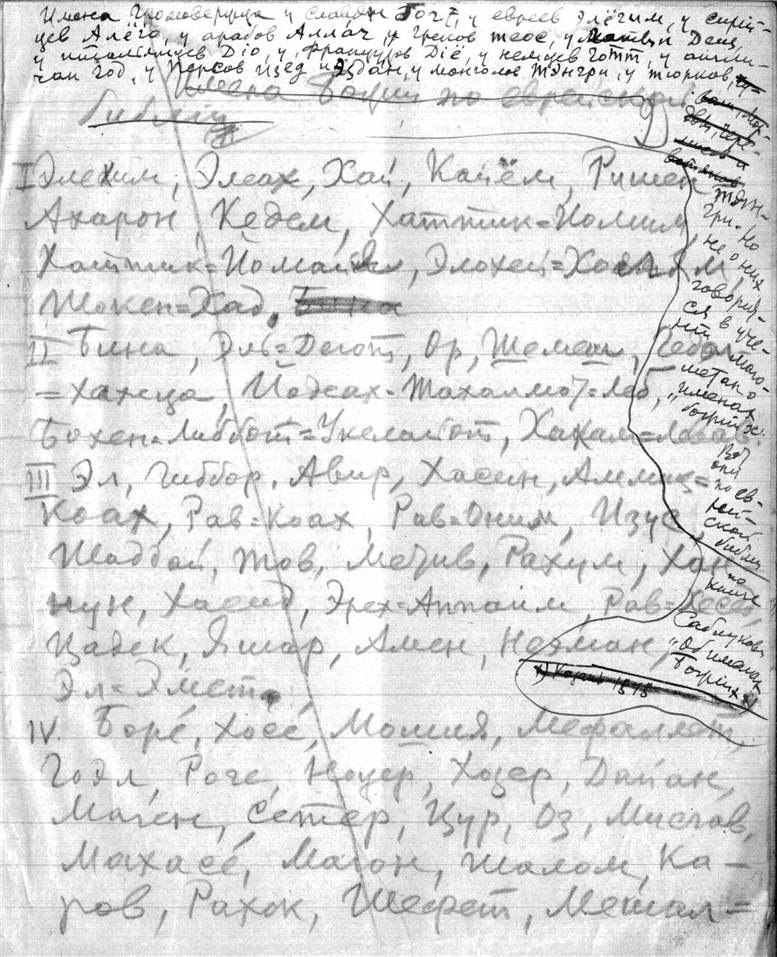 Имена Громовержца у славян Богъ, у евреев Элёгим, у сирий-
цев Алёго, у арабов Аллаг, у греков теос, у Латын Деус,
у итальянцев Dio, у Французов Dié, у немцев Готт, у англи-
чан Год, у Персов Изед и Эздан, у монголов Тэнгри, у тюрков
Имена Божии по еврейской
библии
I Элехим, Элеах, Хай, Каиём, Ришен
Ахарон, Кедем, Хаттик=Иомим
Хаттик=Иомайя, Элохей=Хаейм,
Шокен=Хад,
II Бина, Эль=Деот, Ор, Шемеш,
=Ханца, Йодеах=Тахалмот=Леб,
Бохен=Либбот=Укелайот, Хакам=Лебаб.
III Эл, Гиббор, Авир, Хасин, Аммиц=
Коах, Рав=Коах, Рав=Оним, Изуз,
Шаддай, Тов, Метив, Рахум, Хан-
нун, Хасид, Эрех=Аппаим, Рав=Хесед,
Цадек, Яшар, Амен, Нээман,
Эл=Эмет.
IV. Боре, Хосе, Мошия, Мефаллет,
Гоэл, Роге, Ноцер, Хозер, Дайан,
Маген, Сетер, Цур, Оз, Мисгав,
Махасе, Магон, Шалом, Ка-
ров, Рахок, Шефет, Мешал=
Тэн-
гри. Но
не о них
говорит-
ся в уче-
нии Маго-
метан о
"именах
божиих".
Вот
они
по ев-
рей-
ской
библии
по
книге
Саблукова
"Об именах
Божиих"
1) Казань 1873